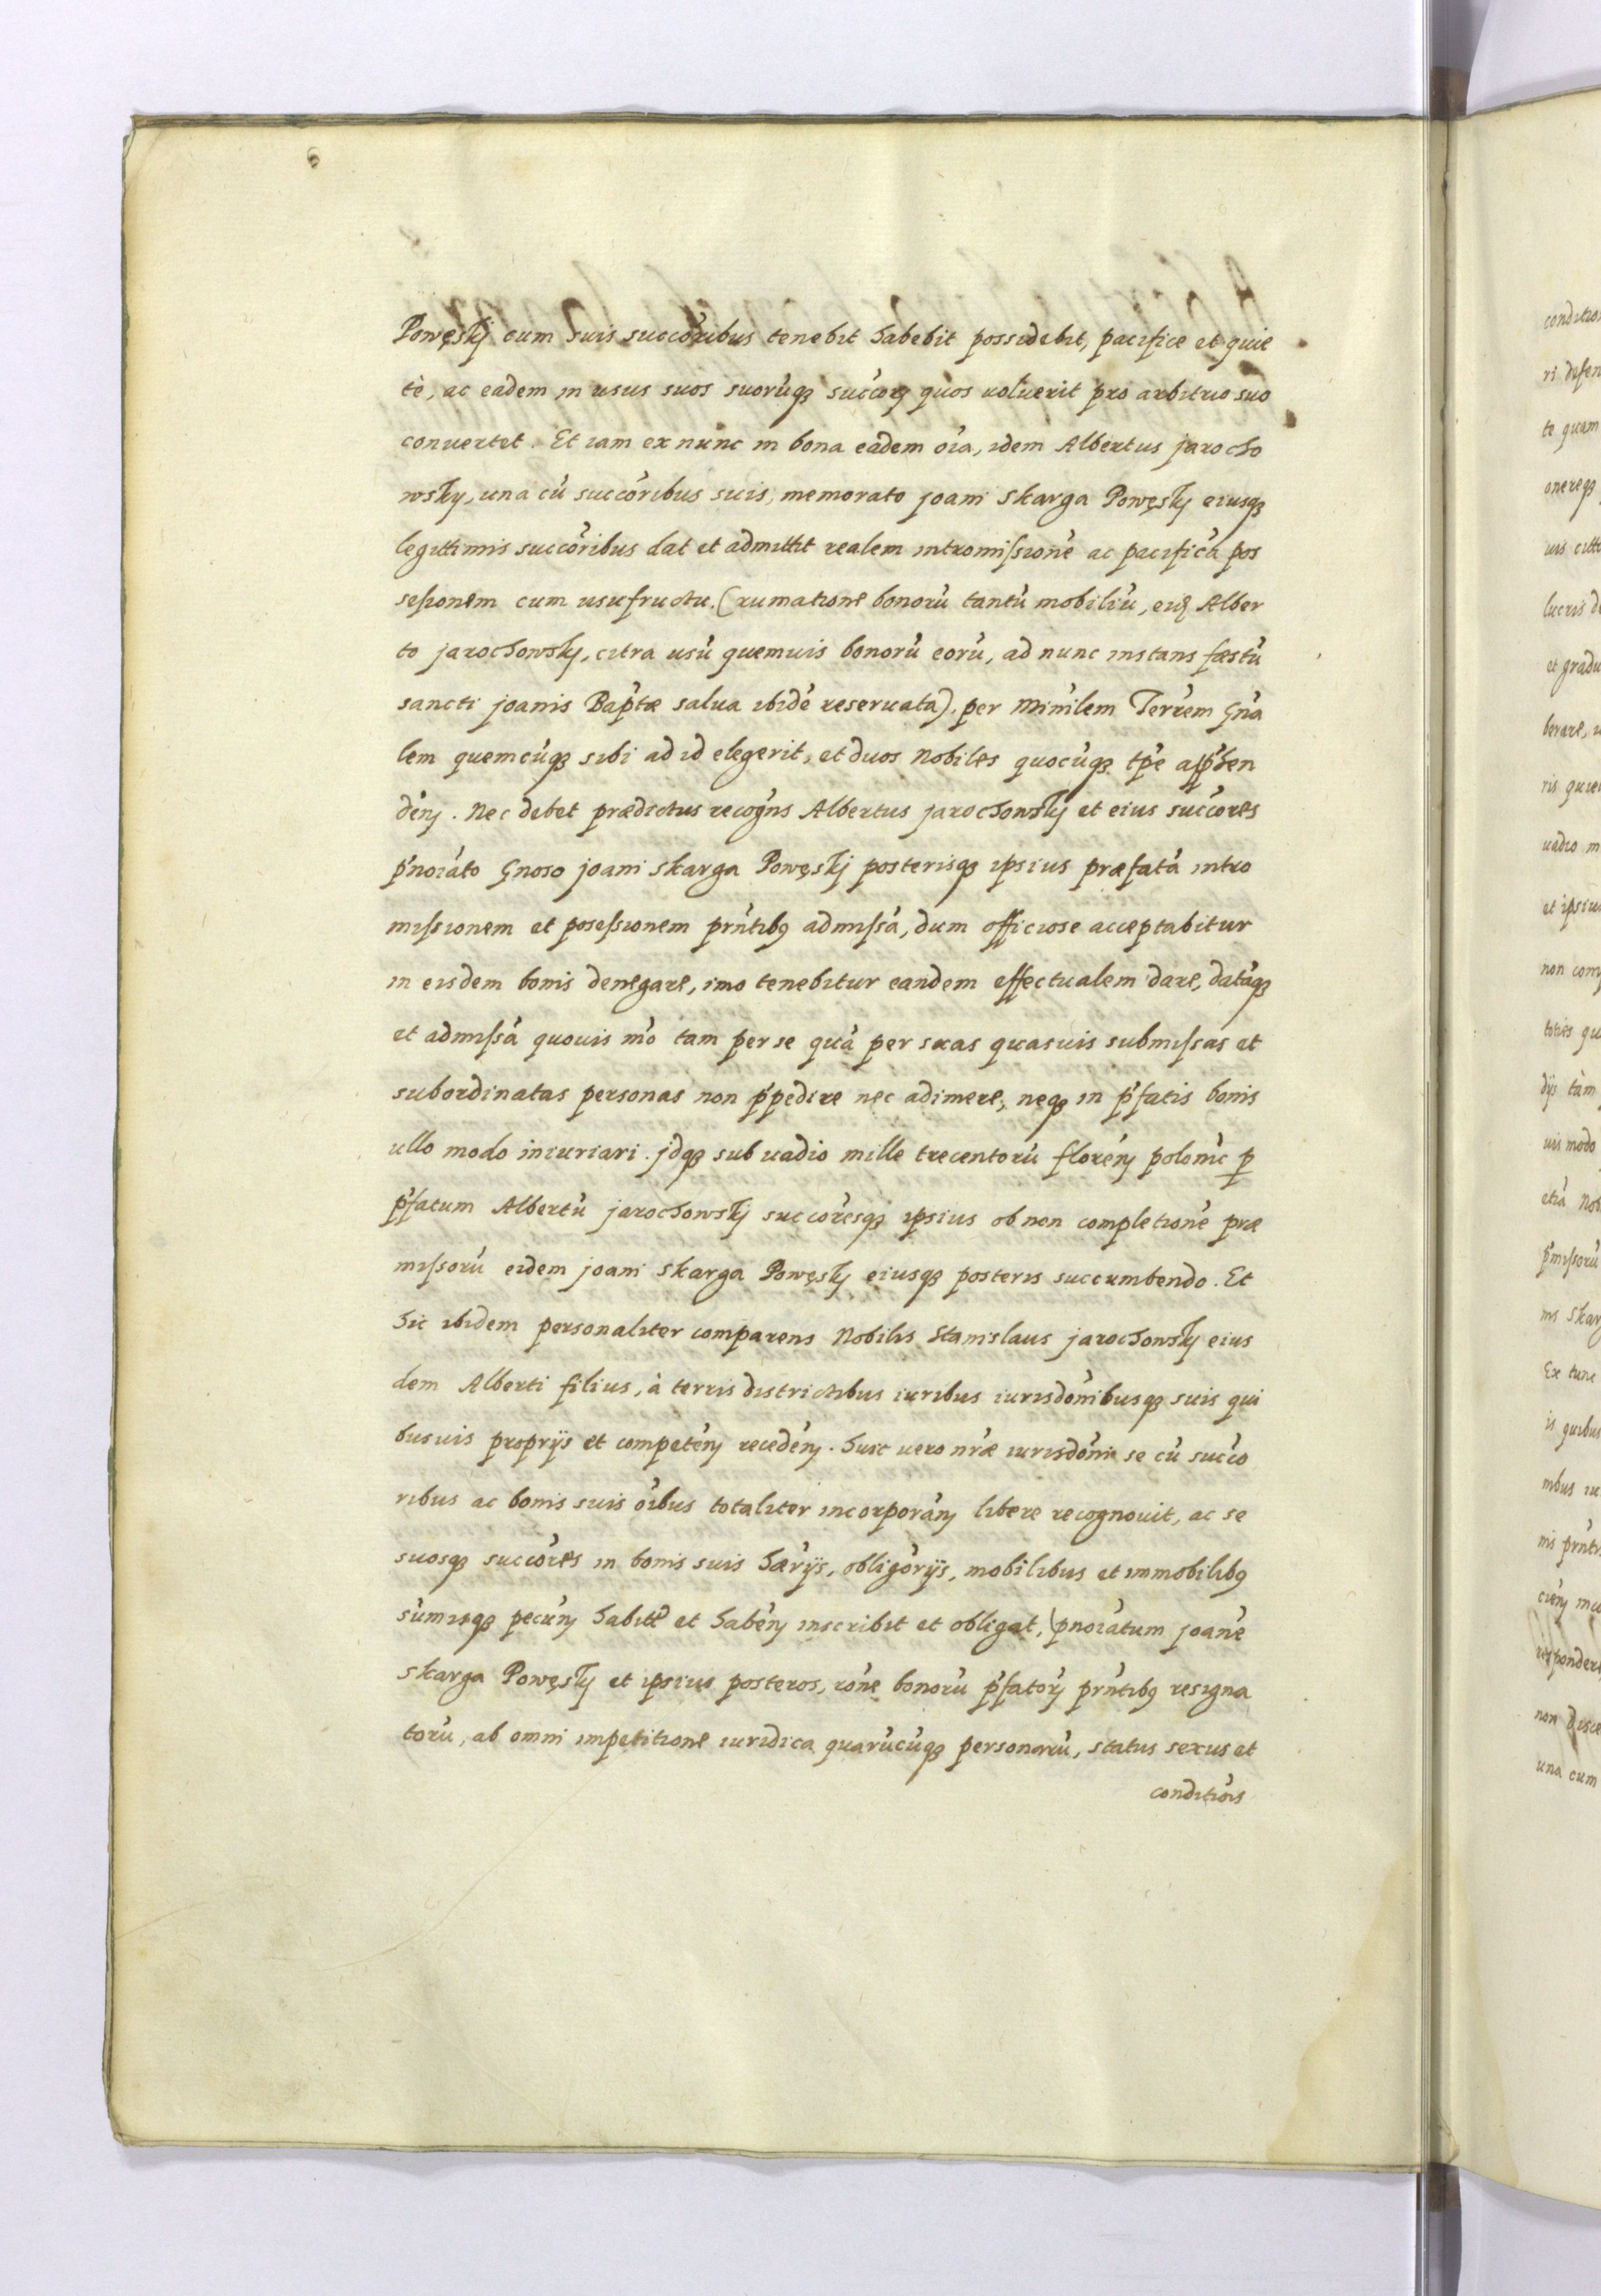 6
Powęskÿ cum suis succóribus tenebit habebit possidebit, pacifice et quie
tè, ac eadem in usus suos suorúqꝫ succorꝫ quos voluerit pro arbitrio suo
convertet. Et iam ex nunc in bona eadem oı́a, idem Albertus Jarocho
wsky, una cú succóribus suis, memorato Joani Skarga Powęskÿ eiusqꝫ
legittimis succóribus dat et admittit realem intromiſsioné ac pacificá pos
seſsionem cum usufructu. (rumatione bonorú tantú mobiliú, eiꝫ Alber
to Jarochowskÿ, citra usú quemvis bonorú eorú, ad nunc instans fæstú
sancti Joanis Bap̃tæ salva ibidé reservata). per Miním̃lem Terrem Gñа
lem quemcúqꝫ sibi ad id elegerit, et duos Nobiles quocúqꝫ tp̃e app̃hen
déñ. Nec debet prædictus recogñs Albertus Jarochowskÿ et eius succóres
p̃noíato Gnoso Joani Skarga Powęskÿ posterisqꝫ ipsius præfatá intro
miſsionem et poseſsionem prñtibꝰ admiſsá, dum officiose acceptabitur
in eisdem bonis denegare, imo tenebitur eandem effectualem dare, datáqꝫ
et admiſsá quovis mó tam per se quá per suas quasvis submiſsas et
subordinatas personas non p̃pedire nec adimere, neqꝫ in p̃fatis bonis
ullo modo iniuriari. Jdqꝫ sub vadio mille trecentorú floréñ poloníc ꝑ
p̃fatum Albertú Jarochowskÿ succóresqꝫ ipsius ob non completioné præ
miſsorú eidem Joani Skarga Powęskÿ eiusqꝫ posteris succumbendo. Et
hic ibidem personaliter comparens Nobilis Stanislaus Jarochowskÿ eius
dem Alberti filius, à terris districtibus iuribus iurisdónibusqꝫ suis qui
busvis proprijs et competéñ recedéñ. huic vero nr̃æ iurisdóni se cú succo
ribus ac bonis suis óibus totaliter incorporáñ libere recognovit, ac se
suosqꝫ succóres in bonis suis hærijs, obligórijs, mobilibus et immobilibꝰ
súmisqꝫ pecúñ habit̃ et habéñ inscribit et obligat, p̃noiatum Joané
Skarga Powęskÿ et ipsius posteros, róne bonorú p̃fatorꝫ prñtibꝰ resigna
torú, ab omni impetitione iuridica quarúcúqꝫ personarú, status sexus et
conditiõis
conditio
ri defen
te quam
onereqꝫ
uis citt
lucris d
et gradu
berare,
ris quie
vadio m
et ipsius
non com
toties qu
dijs tàm
uis modo
etiá Nob
p̃miſsorú
ns Skar
Ex tunc
is quibus
nibus iu
nis prñti
ciéñ
respondere
non disce
una cum